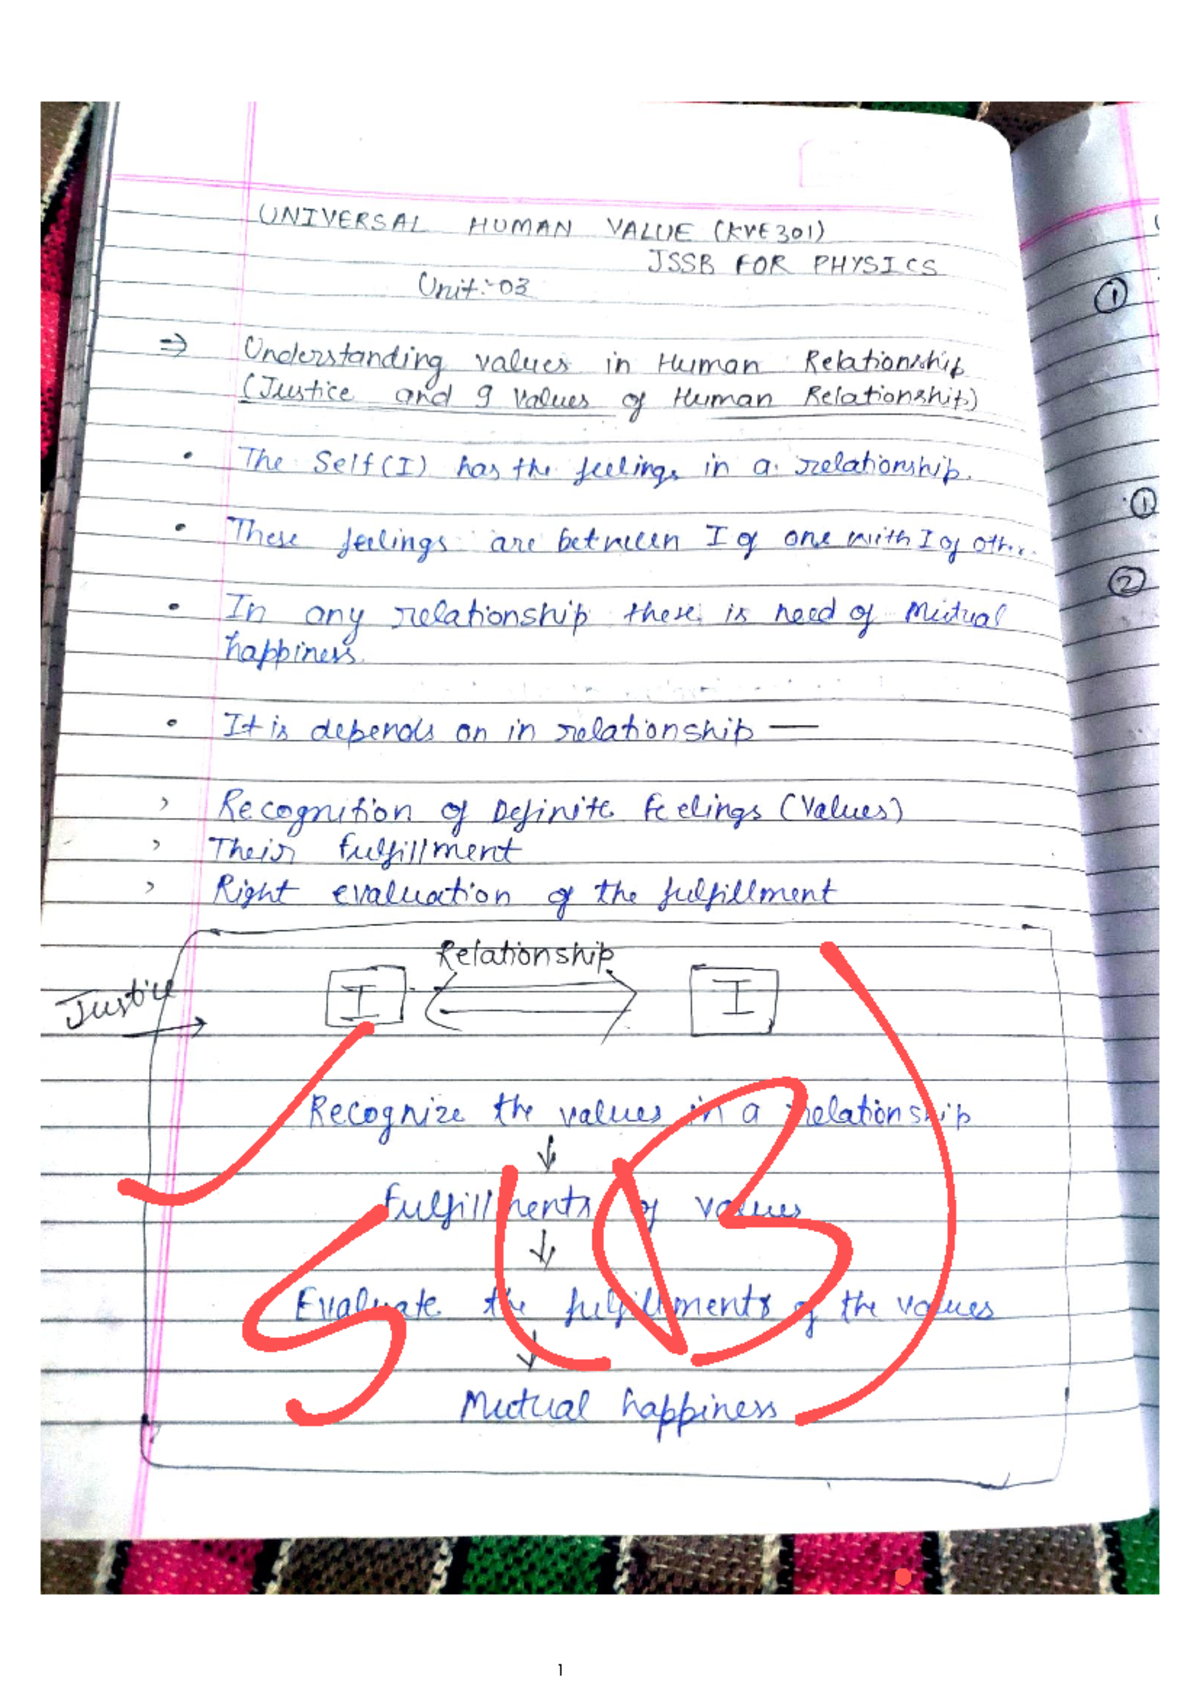 UNIVERSAL HUMAN VALUE (KVE301)
JSSB FOR PHYSICS
Unit:-03
⇒ Understanding values in Human Relationship
(Justice and 9 Values of Human Relationship)
• The Self(I) has the feelings in a relationship.
• These feelings are between I of one with I of other.
• In any relationship there is need of Mutual
happiness.
• It is depends on in relationship —
> Recognition of Definite Feelings (Values)
> Their fulfillment
> Right evaluation of the fulfillment
Relationship
Justice → I I
Recognize the values in a relationship
↓
fulfillments of values
↓
Evaluate the fulfillments of the values
↓
Mutual happiness
①
①
②
1